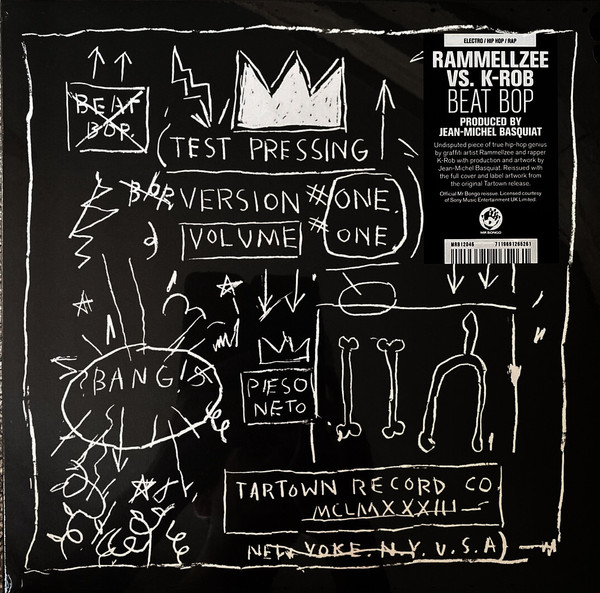 ELECTRO / HIP HOP / RAP
RAMMELLZEE
VS. K-ROB
BEAT BOP
PRODUCED BY
JEAN-MICHEL BASQUIAT
Undisputed piece of true hip-hop genius
by graffiti artist Rammellzee and rapper
K-Rob with production and artwork by
Jean-Michel Basquiat. Reissued with
the full cover and label artwork from
the original Tartown release.
Official Mr Bongo reissue. Licensed courtesy
of Sony Music Entertainment UK Limited.
MR BONGO
MRB12046 7119691265261
BEAT
BOP
(TEST PRESSING
BOP VERSION #ONE.
VOLUME # ONE)
BANG!
PIESO
NETO
TARTOWN RECORD CO.
MCLMXXXIII
NEW YOKE. N.Y. U.S.A)